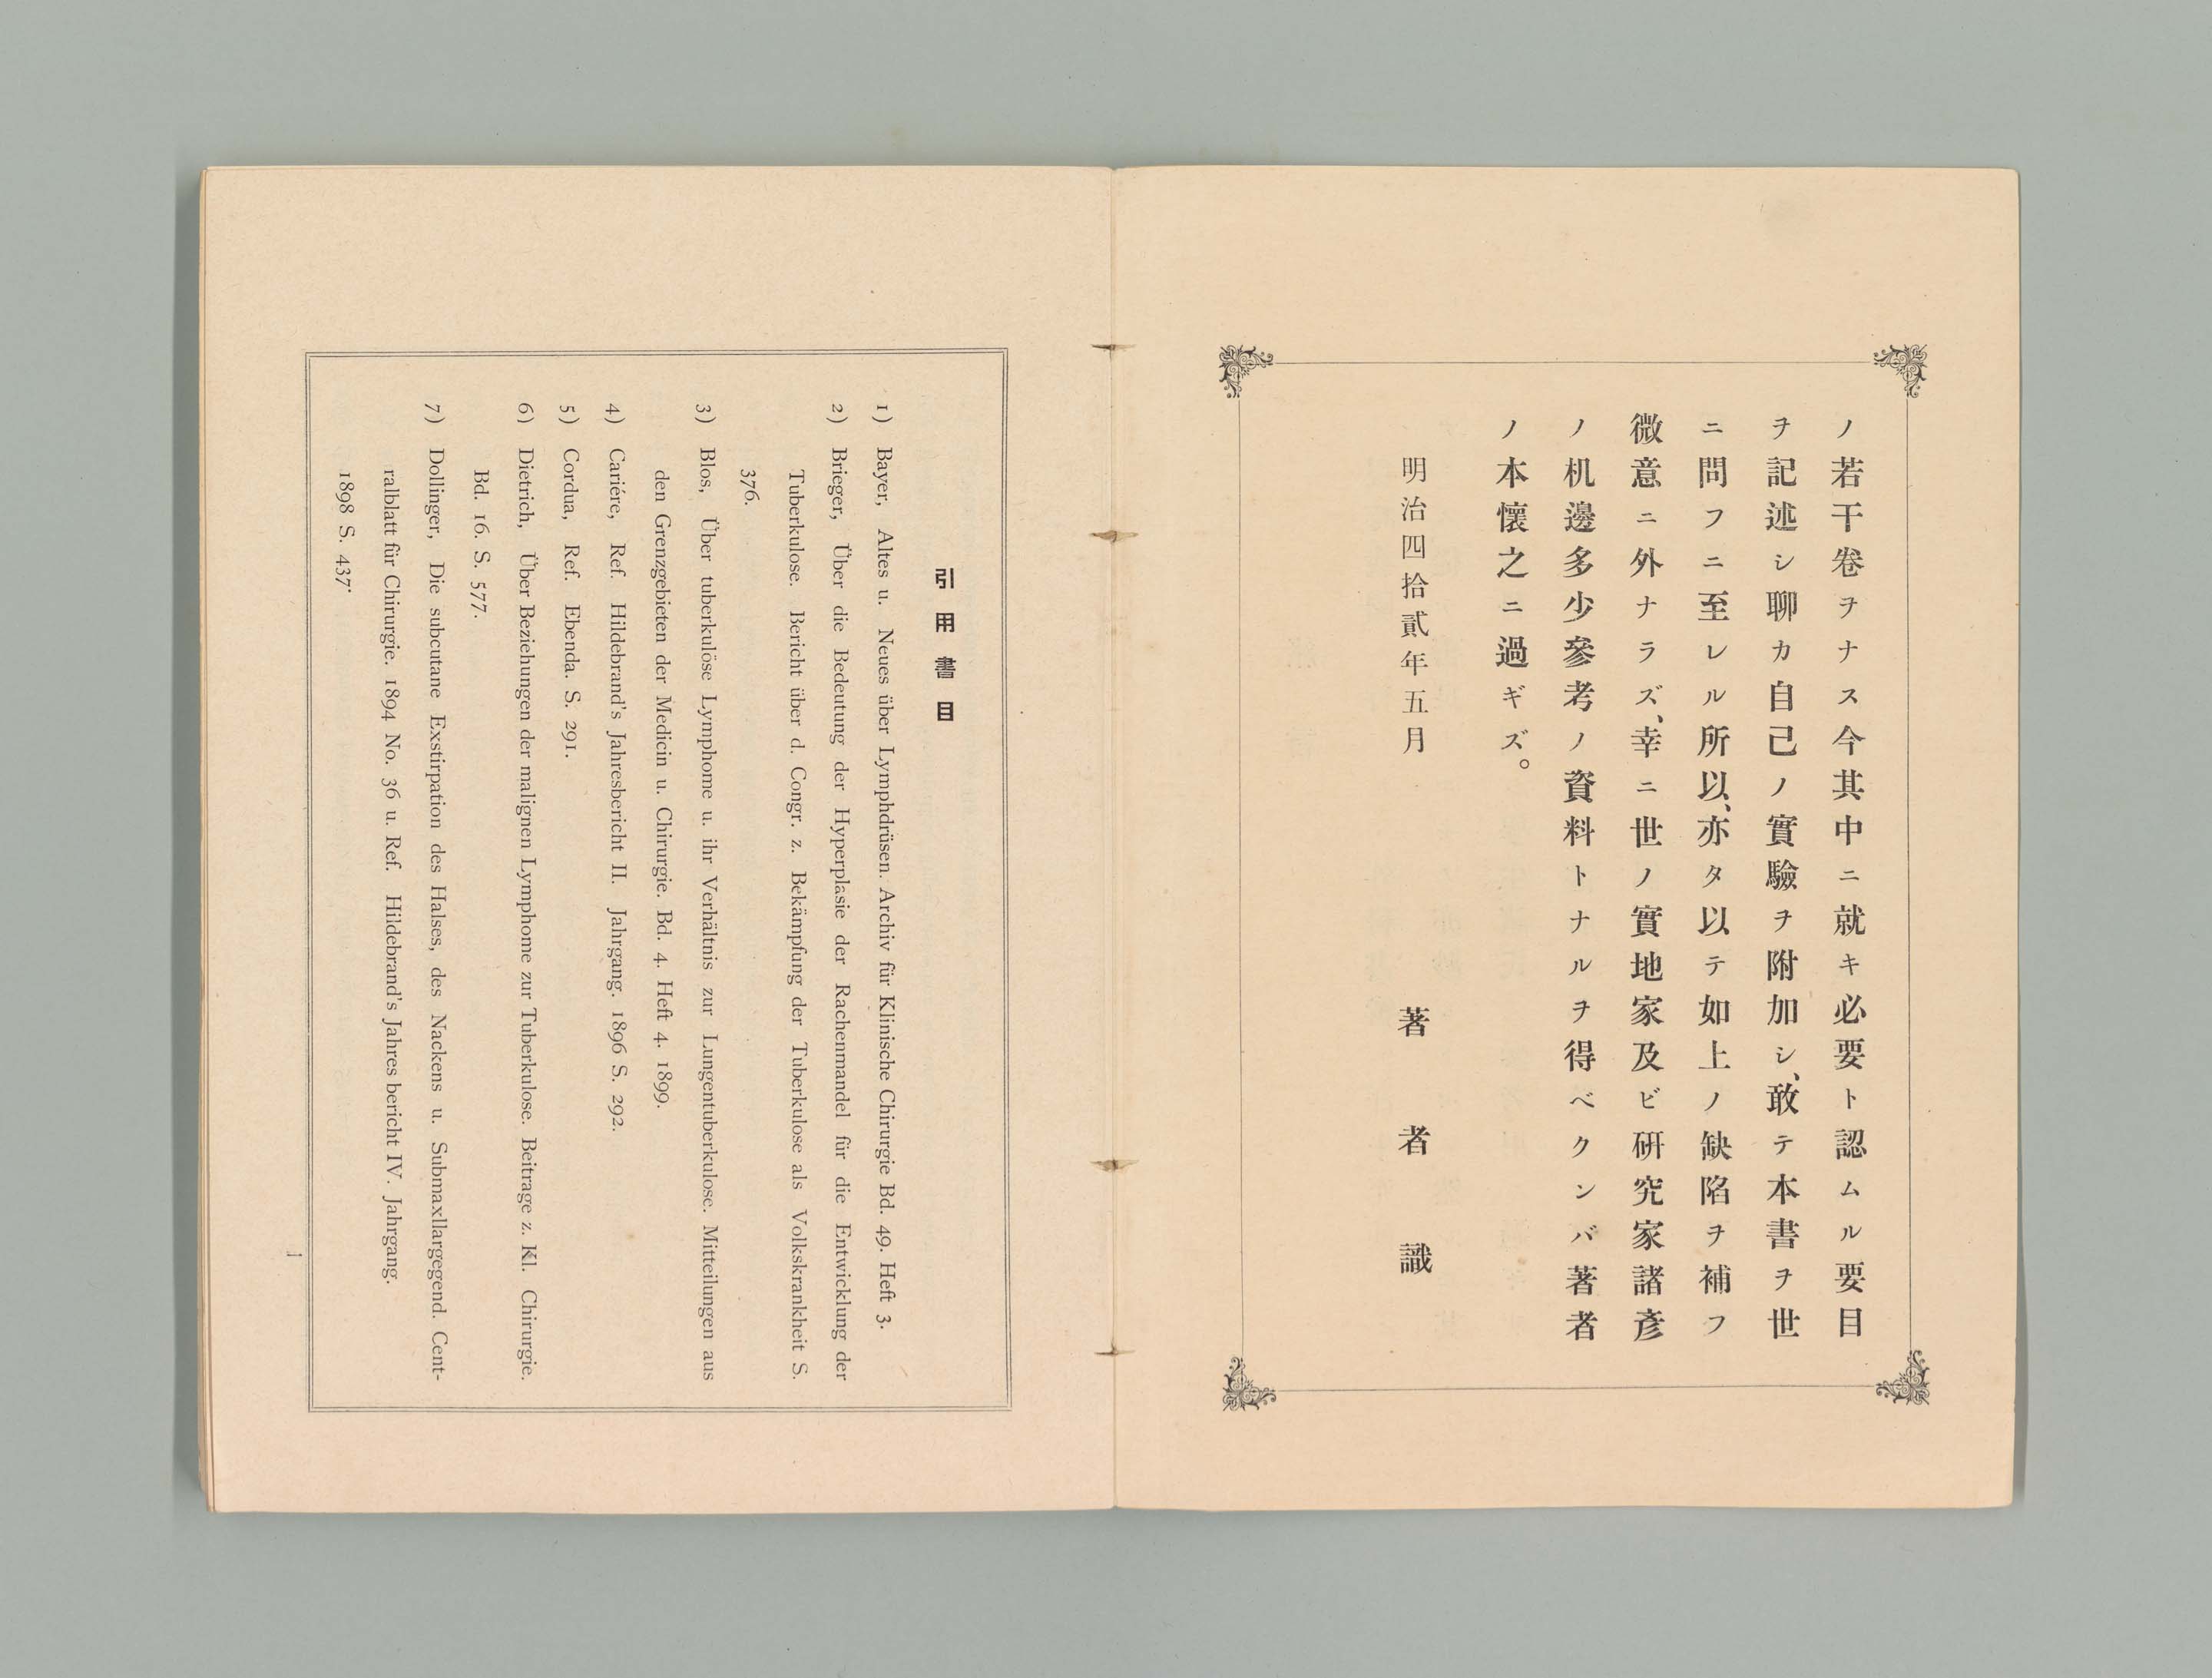 ノ若干卷ヲナス今其中ニ就キ必要ト認ムル要目
ヲ記述シ聊カ自己ノ實驗ヲ附加シ、敢テ本書ヲ世
ニ問フニ至レル所以、亦タ以テ如上ノ缺陷ヲ補フ
微意ニ外ナラズ、幸ニ世ノ實地家及ビ硏究家諸彥
ノ机邊多少參考ノ資料トナルヲ得ベクンバ著者
ノ本懷之ニ過ギズ。
明治四拾貳年五月
著者識
引用書目
1) Bayer, Altes u. Neues über Lymphdrüsen. Archiv für Klinische Chirurgie Bd. 49. Heft 3.
2) Brieger, Über die Bedeutung der Hyperplasie der Rachenmandel für die Entwicklung der
Tuberkulose. Bericht über d. Congr. z. Bekämpfung der Tuberkulose als Volkskrankheit S.
376.
3) Blos, Über tuberkulöse Lymphome u. ihr Verhältnis zur Lungentuberkulose. Mitteilungen aus
den Grenzgebieten der Medicin u. Chirurgie. Bd. 4. Heft 4. 1899.
4) Cariére, Ref. Hildebrand's Jahresbericht II. Jahrgang. 1896 S. 292.
5) Cordua, Ref. Ebenda. S. 291.
6) Dietrich, Über Beziehungen der malignen Lymphome zur Tuberkulose. Beitrage z. Kl. Chirurgie.
Bd. 16. S. 577.
7) Dollinger, Die subcutane Exstirpation des Halses, des Nackens u. Submaxllargegend. Cent-
ralblatt für Chirurgie. 1894 No. 36 u. Ref. Hildebrand's Jahres bericht IV. Jahrgang.
1898 S. 437.
1